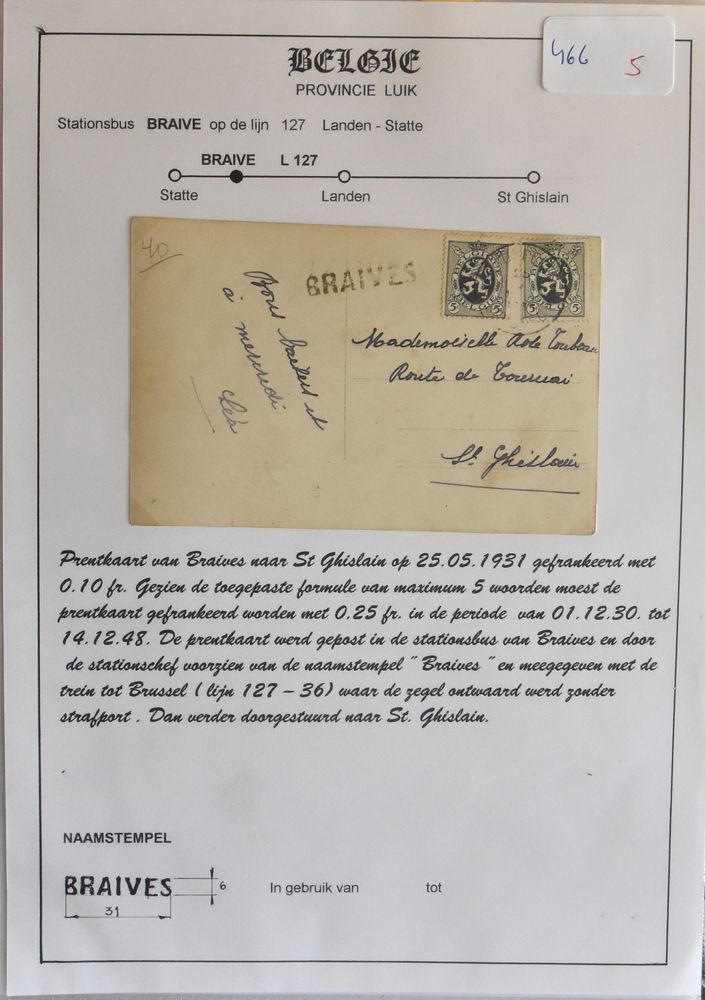 466 5
BELGIE
PROVINCIE LUIK
Stationsbus BRAIVE op de lijn 127 Landen - Statte
BRAIVE L 127
Statte Landen St Ghislain
40
BRAIVES
BELGIQUE BELGIQUE
5 5 5 5
BELGIE BELGIE
Bons baisers et
à mercredi
Léa
Mademoiselle
Route de Tournai
St Ghislain
Prentkaart van Braives naar St Ghislain op 25.05.1931 gefrankeerd met
0.10 fr. Gezien de toegepaste formule van maximum 5 woorden moest de
prentkaart gefrankeerd worden met 0.25 fr. in de periode van 01.12.30. tot
14.12.48. De prentkaart werd gepost in de stationsbus van Braives en door
de stationschef voorzien van de naamstempel " Braives " en meegegeven met de
trein tot Brussel ( lijn 127 – 36) waar de zegel ontwaard werd zonder
strafport . Dan verder doorgestuurd naar St. Ghislain.
NAAMSTEMPEL
BRAIVES 6 In gebruik van tot
31